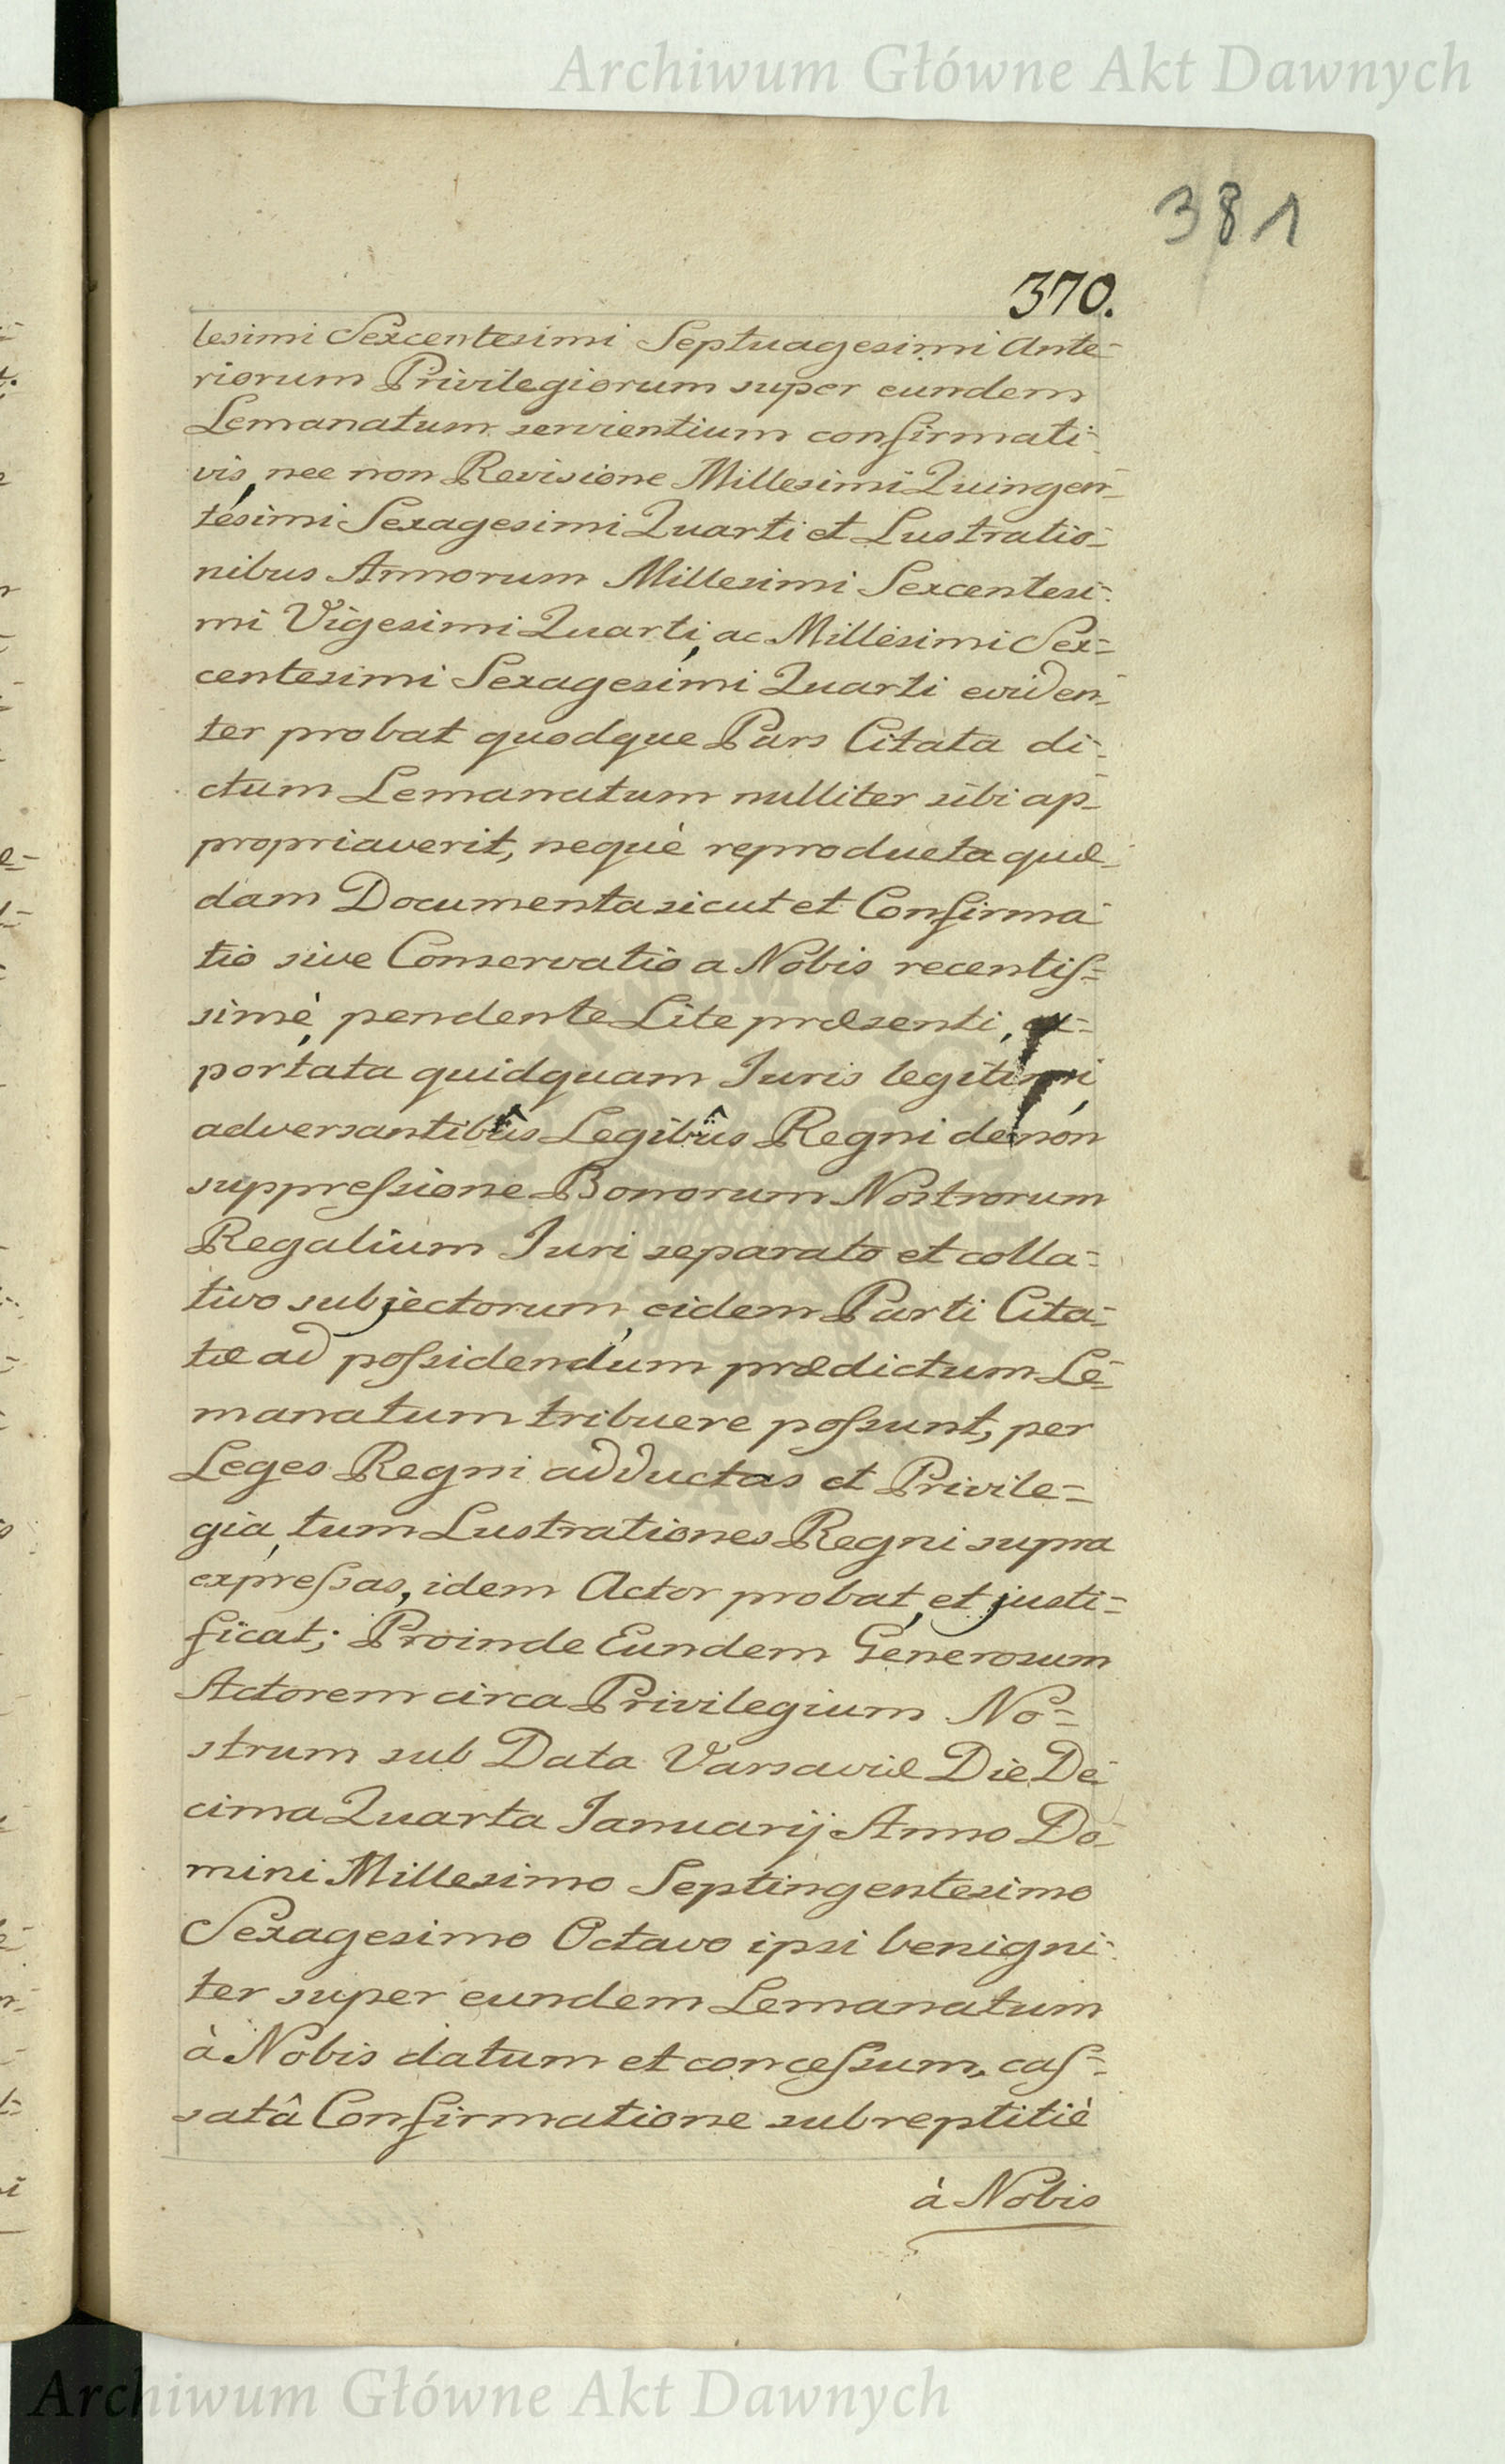 Archiwum Główne Akt Dawnych
381
370.
lesimi Sexcentesimi Septuagesimi Ante-
riorum Privilegiorum super eundem
Lemanatum servientium confirmati-
vis, nec non Revisione Millesimi Quingen-
tesimi Sexagesimi Quarti et Lustratio-
nibus Annorum Millesimi Sexcentesi-
mi Vigesimi Quarti, ac Millesimi Sex=
centesimi Sexagesimi Quarti eviden-
ter probat quodque Pars Citata di-
ctum Lemanatum nulliter sibi ap-
propriaverit, nequè reproducta quæ-
dam Documenta sicut et Confirma-
tio sive Conservatio a Nobis recentiſ=
simè, pendente Lite præsenti,
portata quidquam Juris legitimi,
adversantibûs Legibûs Regni de non
suppreſsione Bonorum Nostrorum
Regalium Juri separato et colla=
tivo subjectorum, eidem Parti Cita=
tæ ad poſsidendum prædictum Le=
manatum tribuere poſsunt, per
Leges Regni adductas et Privile=
gia, tum Lustrationes Regni supra
expreſsas, idem Actor probat, et justi=
ficat; Proinde Eundem Generosum
Actorem circa Privilegium No=
strum sub Data Varsaviæ Die De-
cima Quarta Januarij Anno Do-
mini Millesimo Septingentesimo
Sexagesimo Octavo ipsi benigni-
ter super eundem Lemanatum
à Nobis datum et conceſsum, caſ=
satâ Confirmatione subreptitiè
à Nobis
Archiwum Główne Akt Dawnych